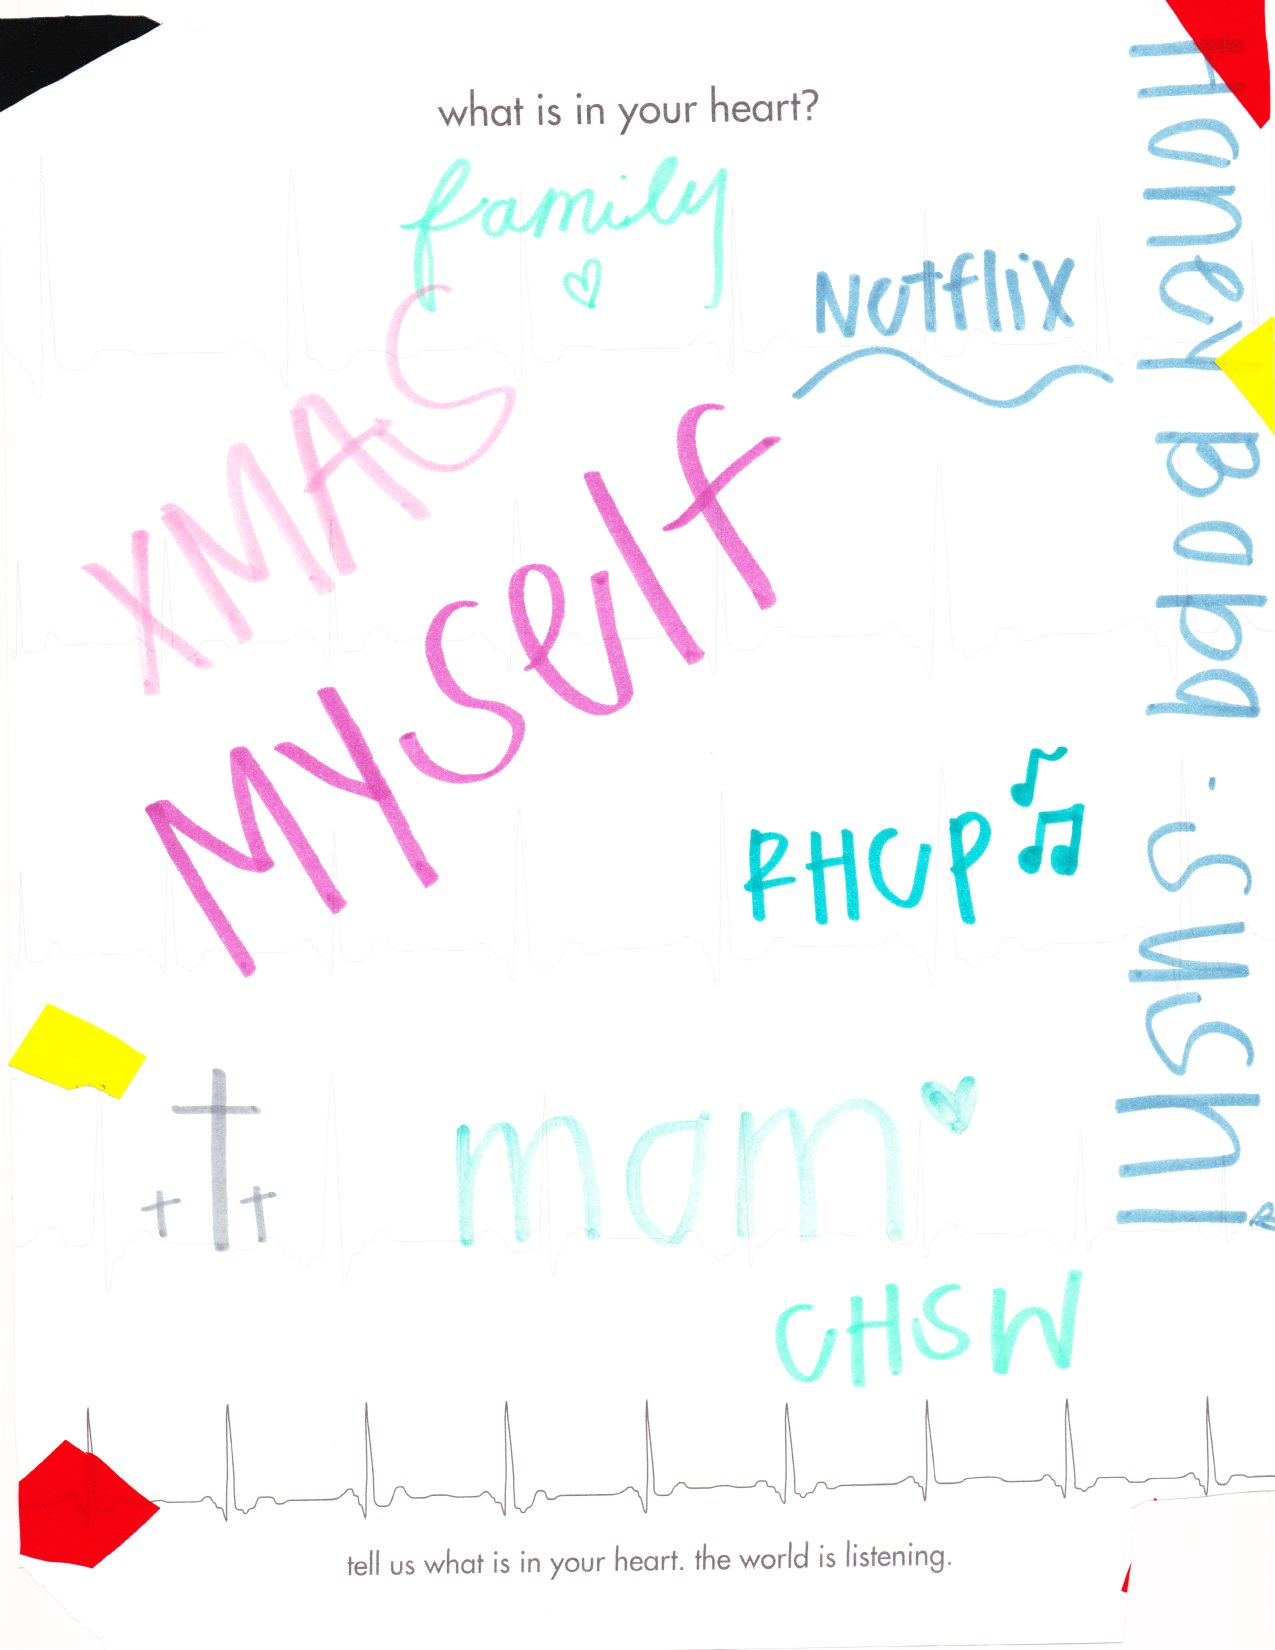 what is in your heart?
family
Netflix
XMAS
MYself
Honey Baba · sushi
RHCP
mom
CHSW
tell us what is in your heart. the world is listening.